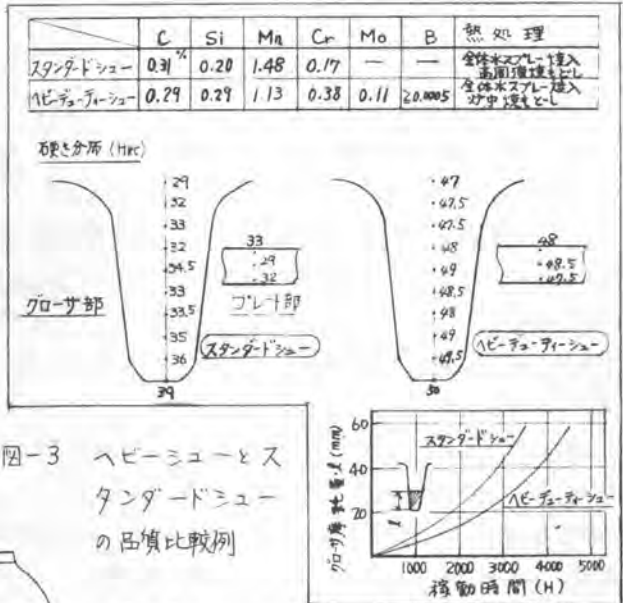 C Si Mn Cr Mo B 熱処理
スタンダードシュー 0.31% 0.20 1.48 0.17 — — 全体水スプレー焼入
高周波焼もどし
ヘビーデューティーシュー 0.29 0.29 1.13 0.38 0.11 ≧0.0005 全体水スプレー焼入
炉中焼もどし
硬さ分布 (HRC)
29
32
33
32
34.5
33
33.5
35
36
39
グローサ部
33
29
32
プレート部
スタンダードシュー
47
47.5
47.5
48
49
48.5
48
49
49.5
50
48
48.5
47.5
ヘビーデューティーシュー
図-3 ヘビーシューとス
タンダードシュー
の品質比較例
グローサ摩耗量・l (mm)
60
40
20
スタンダードシュー
ヘビーデューティーシュー
l
1000 2000 3000 4000 5000
稼動時間 (H)